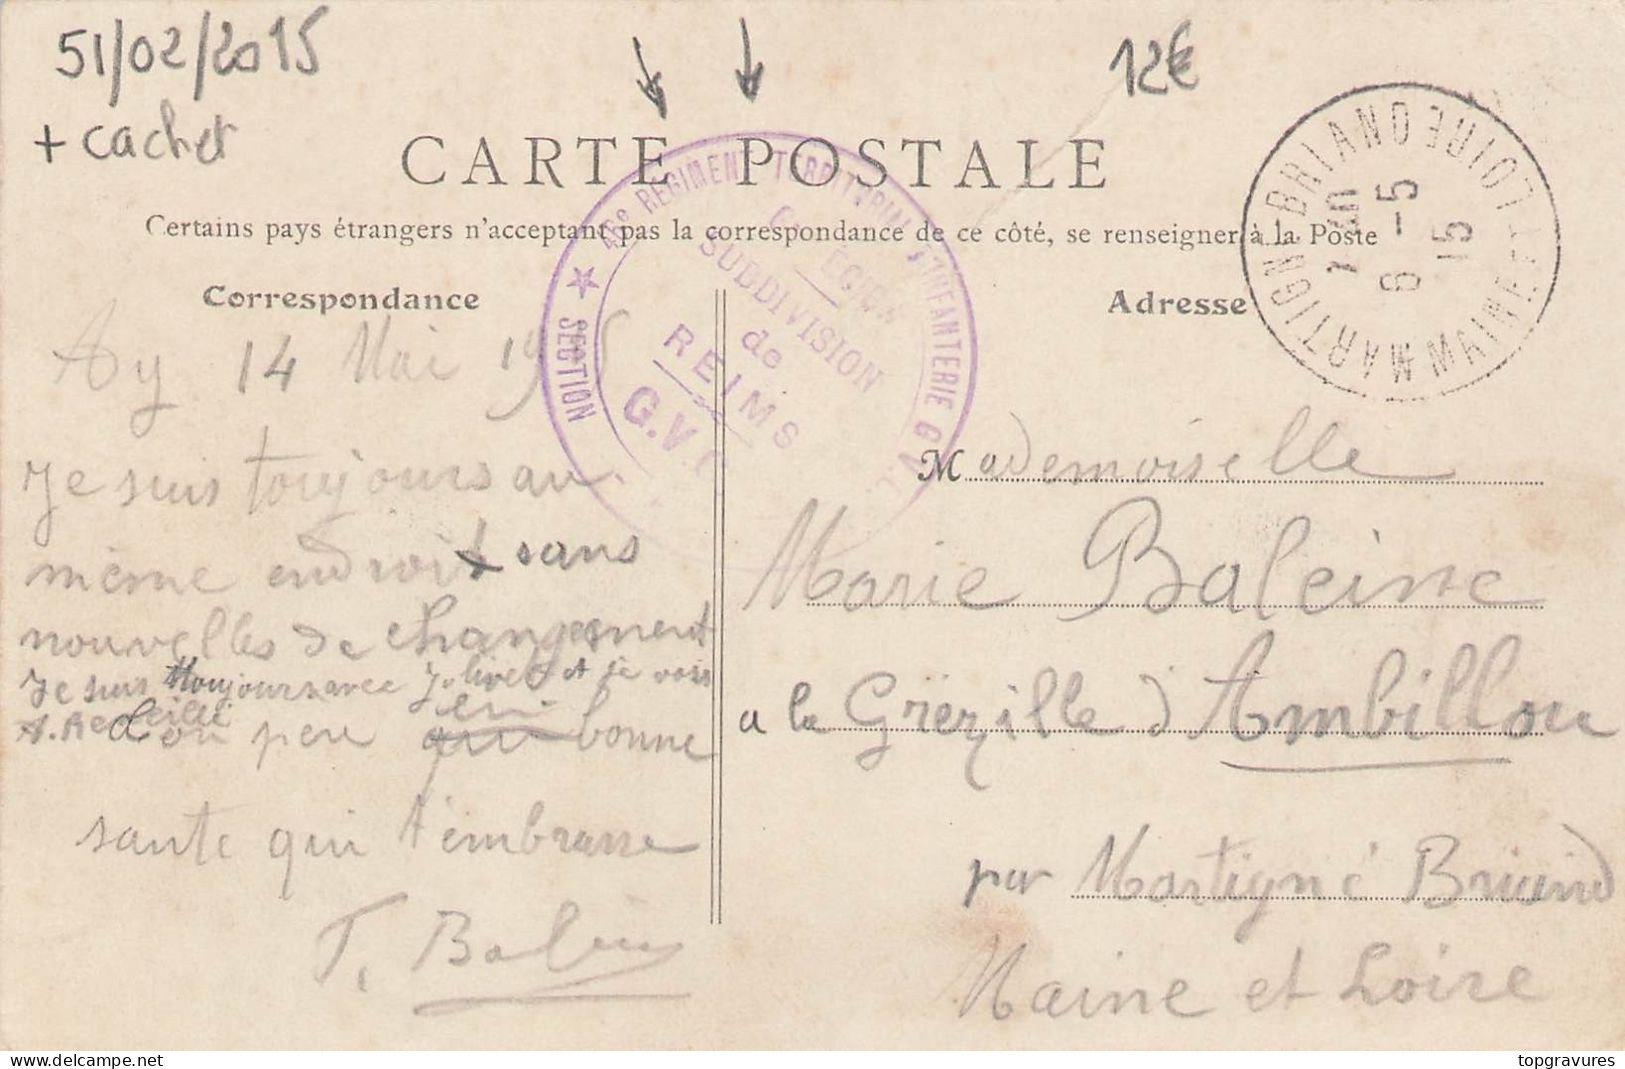 51/02/2015
+ cachet
12€
CARTE POSTALE
Certains pays étrangers n'acceptant pas la correspondance de ce côté, se renseigner à la Poste
Correspondance
Adresse
46e REGIMENT TERRITORIAL D'INFANTERIE G.V.C.
SECTION
SUBDIVISION
de
REIMS
G.V.C
MARTIGNÉ-BRIAND
MAINE ET LOIRE
6 -5
15
Ay 14 Mai 1915
Je suis toujours au
même endroit sans
nouvelles de changement
Je suis toujours avec Jolivet et je vois
A.
Ton pere en bonne
sante qui t'embrasse
T. Baleine
Mademoiselle
Marie Baleine
a la Grézille d'Ambillou
par Martigné Briand
Maine et Loire
www.delcampe.net
topgravures